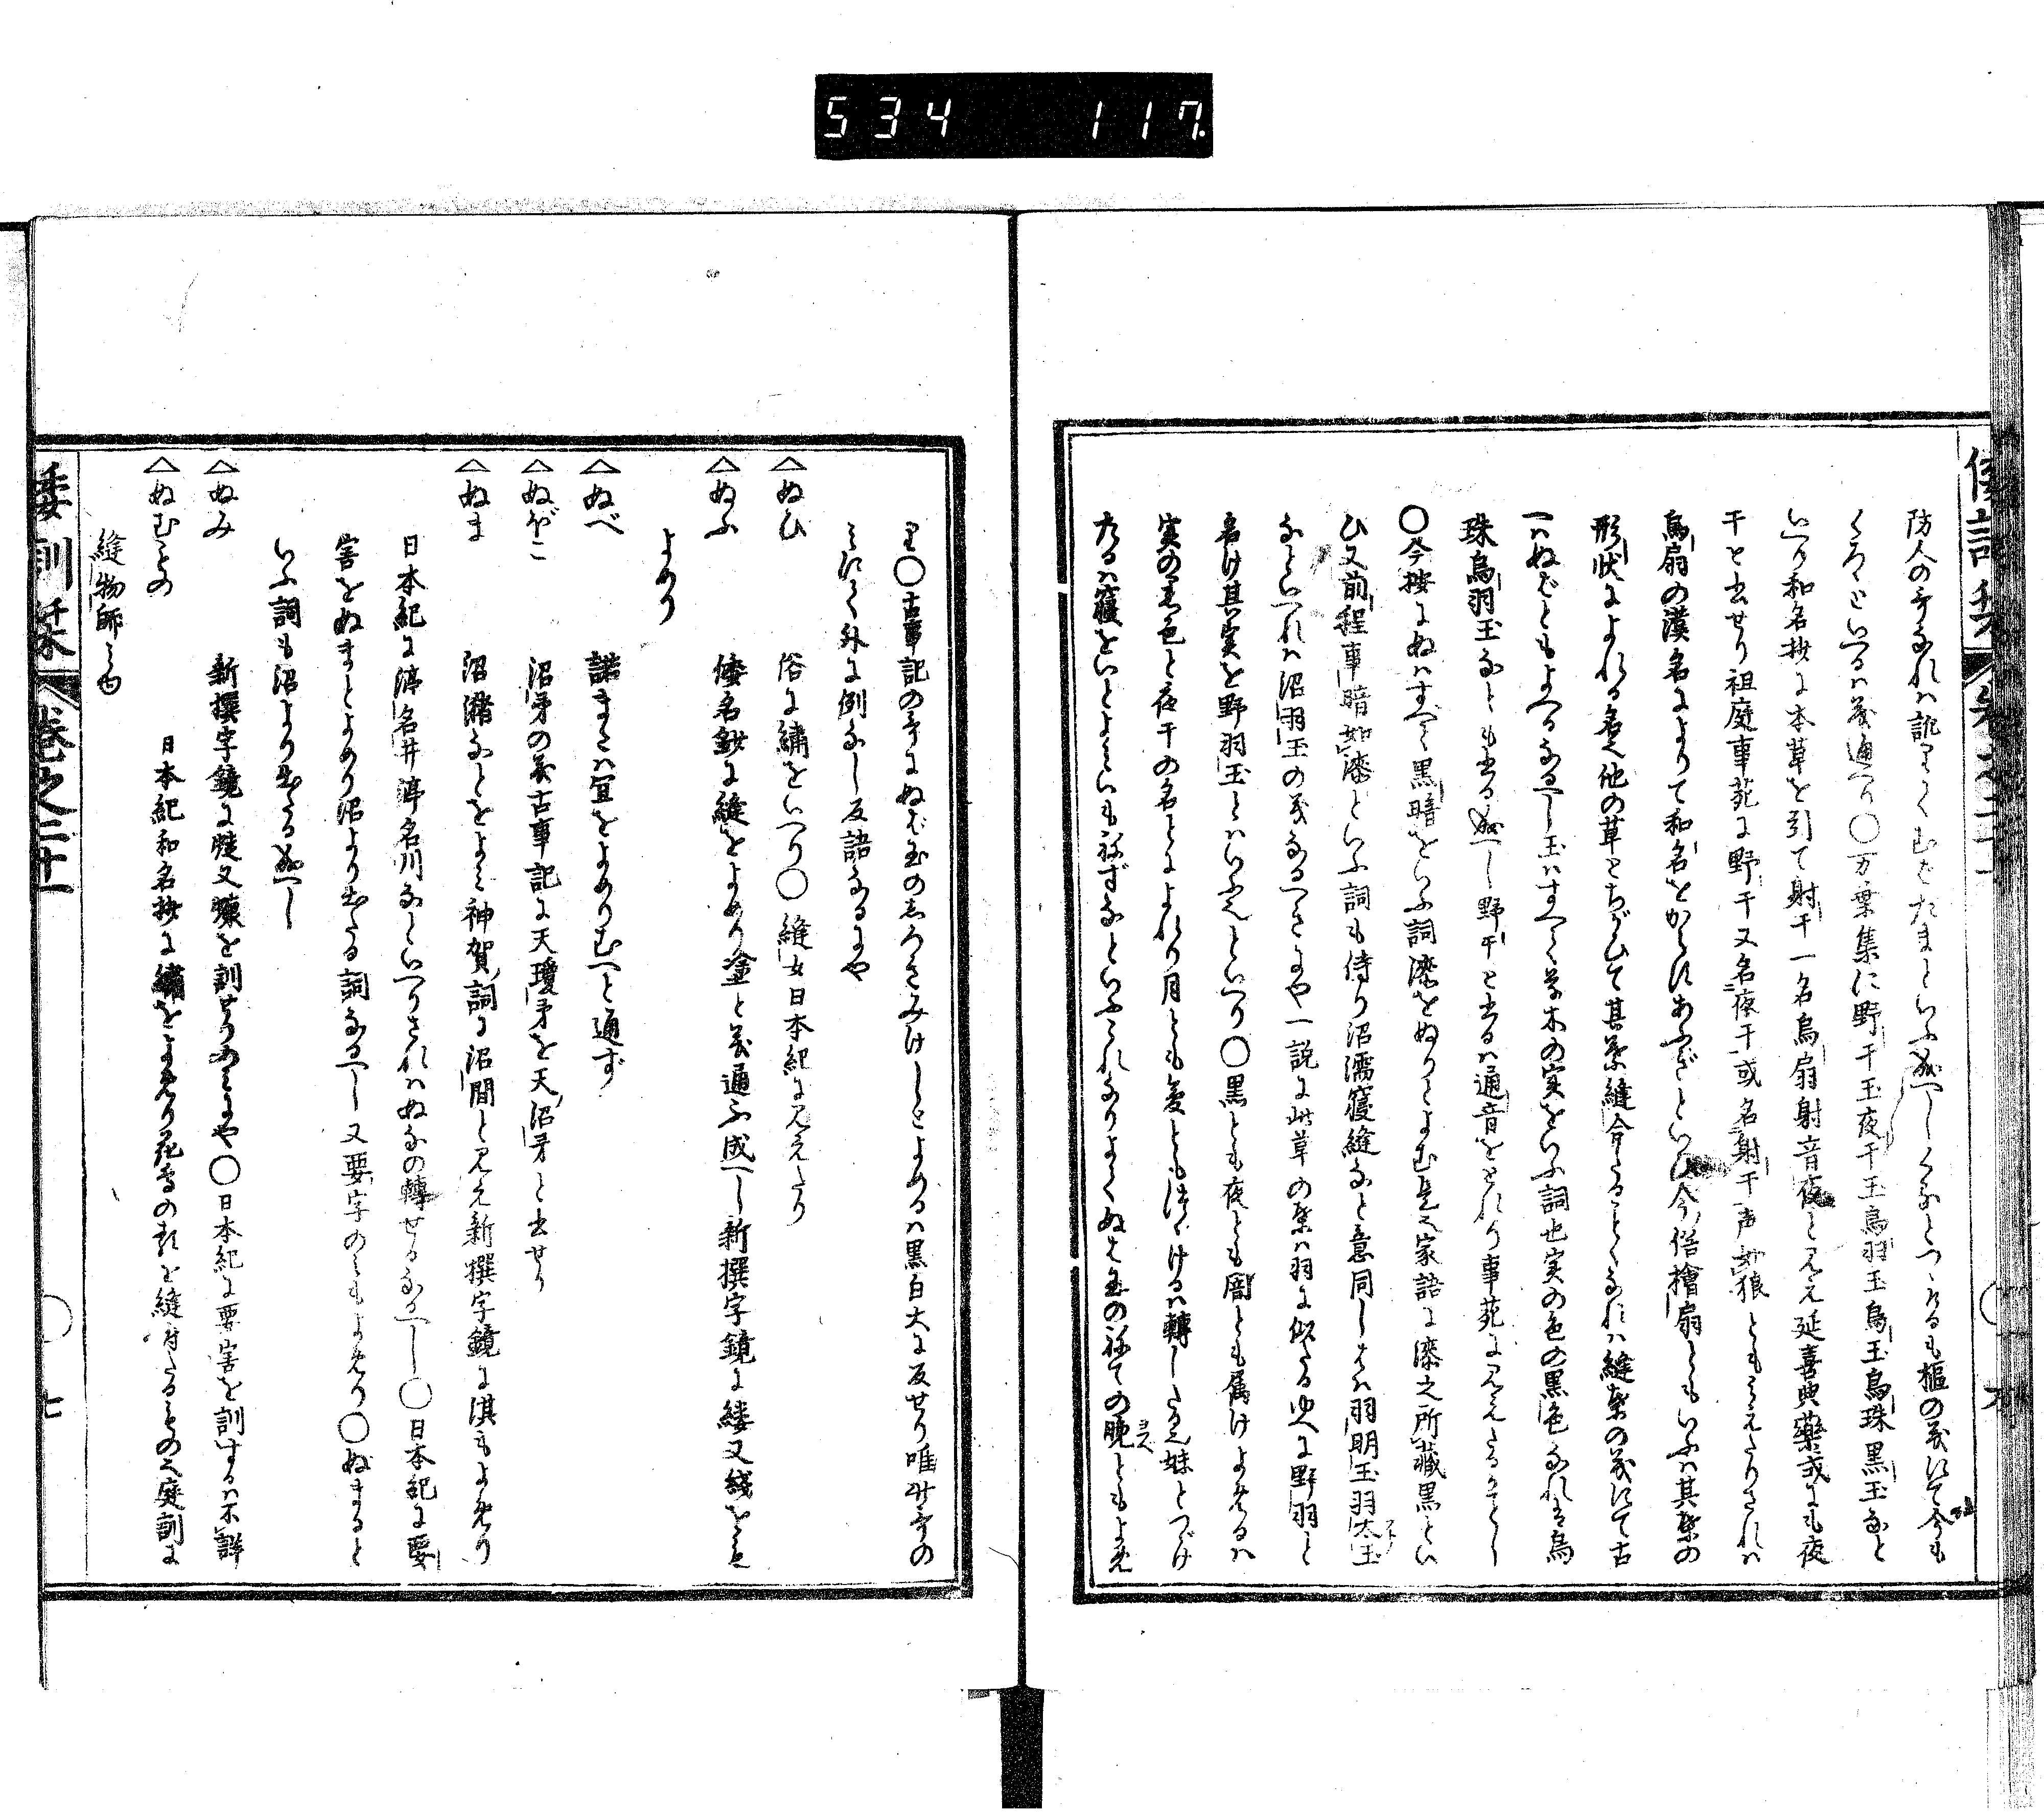 534 117
防人の哥なれハ訛りてむばたまといふ成へしくなとつゝけるも樞の義にて今も
くろゝといへるハ義通へり〇万葉集に野干玉夜干玉烏羽玉烏玉烏珠黒玉なと
いへり和名抄に本草を引て射干一名烏扇射音夜と見え延喜典藥式にも夜
干と書せり祖庭事苑に野干又名夜干或名射干声如狼ともみえたりされハ
烏扇の漢名によりて和名をからすあふぎといひ今俗檜扇ともいふハ其葉の
形状によれる名也他の草とちがひて其葉縫合たることくなれハ縫葉の義にて古
へハぬばともよへるなるへし玉ハすへて草木の実をいふ詞也実の色の黒色なれは烏
珠烏羽玉なとも書る成へし野干と書るハ通音をとれり事苑に見えたるかことし
〇今按にぬハすへて黒暗をいふ詞漆をぬりとよむ是也家語に漆之所藏黒とい
ひ又前程事暗如漆といふ詞も侍り沼濡寝縫なと意同しはハ羽明玉羽太玉
なといへれハ沼羽玉の義なるへきにや一説に此草の葉ハ羽に似たるゆへに野羽と
名け其実を野羽玉とハいふ也といへり〇黒とも夜とも闇とも属けよめるハ
実の黒色と夜干の名とによれり月とも夢ともつゝけるハ轉したる也妹とつゞけ
たるハ寝をいとよミいも祢ずなといふこれなりよてぬは玉の祢ての晩ともよめ
り〇古事記の哥にぬば玉の黒きみけしとよめるハ黒白大に反せり唯此哥の
ミにて外に例なし反語なるにや
△ぬひ 俗に繍をいへり〇縫女日本紀に見えたり
△ぬふ 倭名鈔に縫をよめり塗と義通ふ成へし新撰字鏡に縷又綫をも
よめり
△ぬべ 諾またハ宜をよめりむへと通ず
△ぬぼこ 沼矛の義古事記に天瓊矛を天沼矛と書せり
△ぬま 沼瀦なとをよミ神賀詞に沼間と見え新撰字鏡に淇もよめり
日本紀に渟名井渟名川なといへりされハぬなの轉せるなるへし〇日本紀に要
害をぬまとよめり沼より出たる詞なるへし又要字のミもよめり〇ぬまると
いふ詞も沼より出たる成へし
△ぬみ 新撰字鏡に を訓せりのミにや〇日本紀に要害を訓するハ不詳
△ぬむもの 日本紀和名抄に繍をよめり花鳥の類を縫付たるもの也庭訓に
縫物師も也
倭訓栞 巻之二十一 七